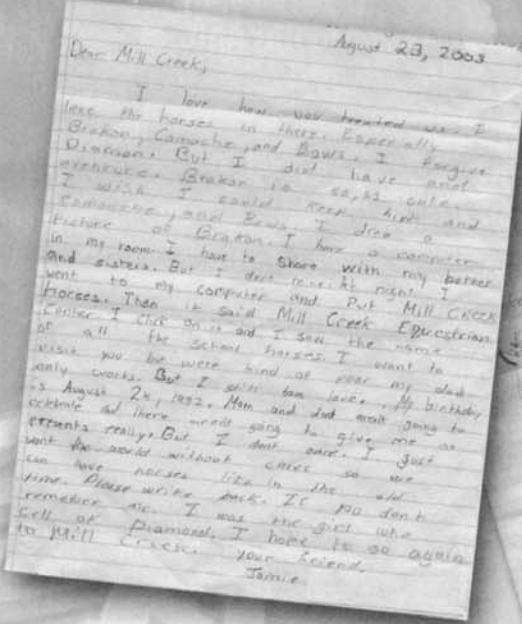 August 23, 2003
Dear Mill Creek,
I love how you treated us. I
love the horses in there. Especially
Brakon, Comache, and Bows. I forgive
Diamon. But I did have and
Brakon is so, so cute.
I wish I could keep him and
comanche, and Bows. I drew a
picture of Brakon. I have a computer
in my room. I have to share with my
and sisters. But I dont At night I
went to my computer and put Mill Creek
horses. Then it said Mill Creek Equestrian
Center. I click on it and I saw the name
of all the school horses. I want to
visit you but were kind of poor my dad
only works. But I still love. My birthday
is August 1992. Mom and dad arent going to
celebrate and there arent going to give me
presents really. But I dont care. I just
want the world without so we
can have horses like in the old
time. Please write back. If you dont
remeber me. I was the girl who
of Diamond. I hope to go again
to Mill Creek. your friend,
Jamie